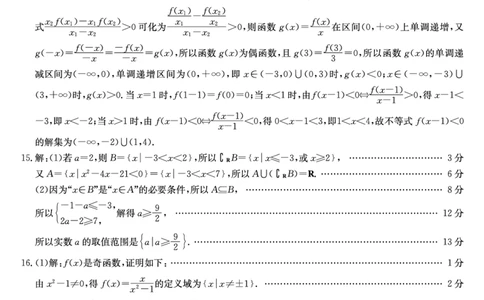 式$\frac{x_2f(x_1)-x_1f(x_2)}{x_1-x_2}$>0可化为$\frac{\frac{f(x_1)}{x_1}-\frac{f(x_2)}{x_2}}{x_1-x_2}$>0,则函数g(x)=$\frac{f(x)}{x}$在区间(0,+∞)上单调递增,又
g(-x)=$\frac{f(-x)}{-x}$=$\frac{-f(x)}{-x}$=g(x),所以函数g(x)为偶函数,且g(3)=$\frac{f(3)}{3}$=0,所以函数g(x)的单调递
减区间为(-∞,0),单调递增区间为(0,+∞),即x∈(-3,0)∪(0,3)时,g(x)<0;x∈(-∞,-3)∪
(3,+∞)时,g(x)>0.当x=1时,f(1-1)=f(0)=0;当x<1时,由f(x-1)<0⇔$\frac{f(x-1)}{x-1}$>0,得x-1<
-3,即x<-2;当x>1时,由f(x-1)<0⇔$\frac{f(x-1)}{x-1}$<0,得0<x-1<3,即1<x<4,故不等式f(x-1)<0
的解集为(-∞,-2)∪(1,4).
15.解:(1)若a=2,则B={x|-3<x<2},所以∁RB={x|x≤-3,或x≥2}, …… 3分
又A={x|x²-4x-21<0}={x|-3<x<7},所以A∪(∁RB)=R. …… 6分
(2)因为“x∈B”是“x∈A”的必要条件,所以A⊆B, …… 8分
所以$\begin{cases}-1-a≤-3,\\2a-2≥7,\end{cases}$解得a≥$\frac{9}{2}$, …… 12分
所以实数a的取值范围是{a|a≥$\frac{9}{2}$}. …… 13分
16.(1)解:f(x)是奇函数,证明如下: …… 1分
由x²-1≠0,得f(x)=$\frac{x}{x^2-1}$的定义域为{x|x≠±1}. …… 2分